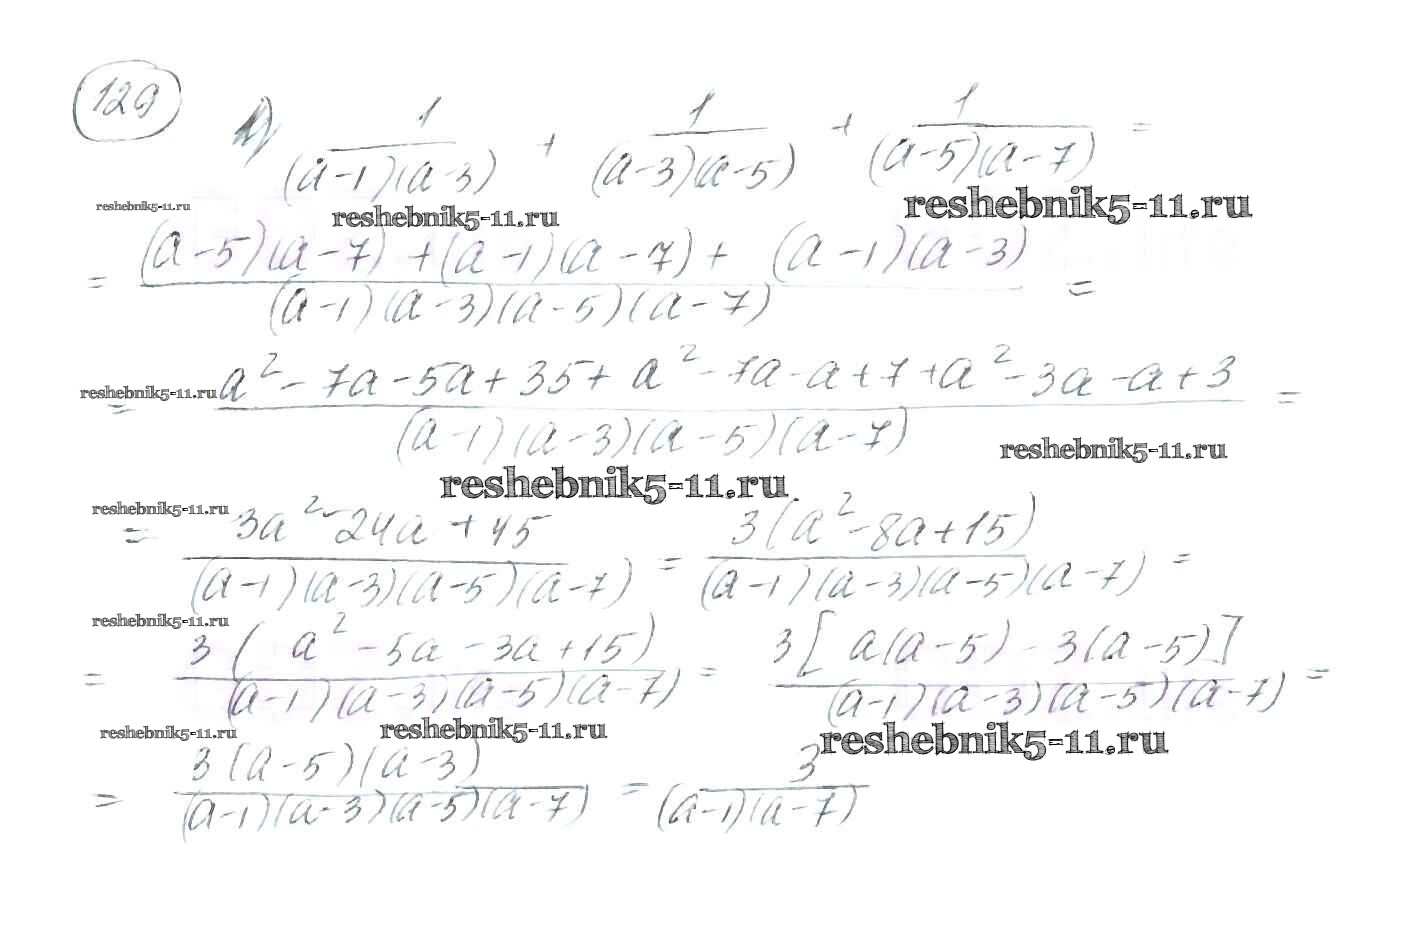 129 1) 1/((a-1)(a-3)) + 1/((a-3)(a-5)) + 1/((a-5)(a-7)) =
reshebnik5-11.ru reshebnik5-11.ru reshebnik5-11.ru
= ((a-5)(a-7) + (a-1)(a-7) + (a-1)(a-3))/((a-1)(a-3)(a-5)(a-7)) =
reshebnik5-11.ru
= (a² - 7a - 5a + 35 + a² - 7a - a + 7 + a² - 3a - a + 3)/((a-1)(a-3)(a-5)(a-7)) =
reshebnik5-11.ru
reshebnik5-11.ru
reshebnik5-11.ru
= (3a² - 24a + 45)/((a-1)(a-3)(a-5)(a-7)) = 3(a² - 8a + 15)/((a-1)(a-3)(a-5)(a-7)) =
reshebnik5-11.ru
= 3(a² - 5a - 3a + 15)/((a-1)(a-3)(a-5)(a-7)) = 3[a(a-5) - 3(a-5)]/((a-1)(a-3)(a-5)(a-7)) =
reshebnik5-11.ru reshebnik5-11.ru reshebnik5-11.ru
= 3(a-5)(a-3)/((a-1)(a-3)(a-5)(a-7)) = 3/((a-1)(a-7))